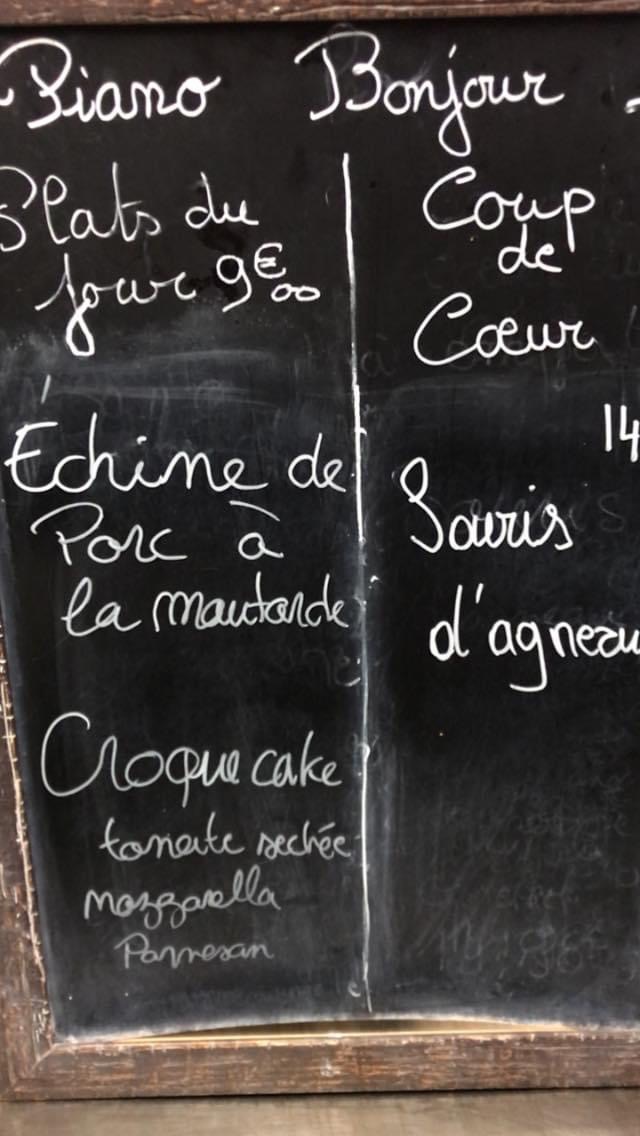 Piano Bonjour -
Plats du
jour 9€00
Échine de
Porc à
la moutarde
Croque cake
tomate sechée
mozzarella
Parmesan
Coup
de
Cœur
14
Souris
d'agneau